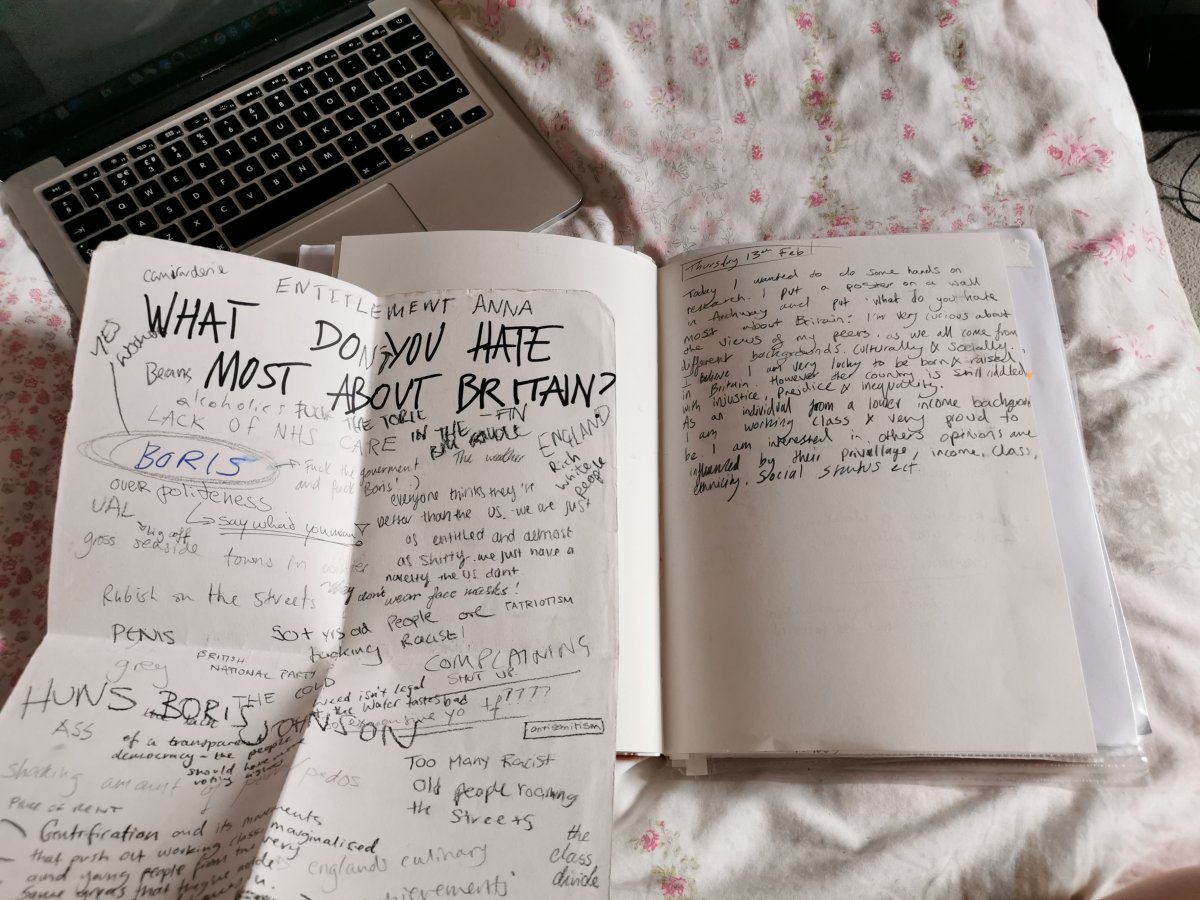 camiraderie
ENTITLEMENT ANNA
WHAT DO YOU HATE
MOST ABOUT BRITAIN?
YES
Beans
alcoholics FUCK THE TORIE
LACK OF NHS CARE IN THE
The weather
ENGLAND
Rich
white
people
BORIS
Fuck the goverment
and fuck Boris! :)
over politeness
say what you mean
UAL
gross seaside towns in winter
Rubish on the streets
everyone thinks they're
better than the US. we are just
as entitled and almost
as shitty. we just have a
the US dont
don't
wear face masks!
PATRIOTISM
50+ yrs old People are
fucking Racist!
PENIS
grey
BRITISH
NATIONAL PARTY
THE COLD
COMPLAINING
SHUT UP.
weed isn't legal
the water tastes bad
expensive yo tf????
HUNS BORIS JOHNSON
ASS
of a transparent
democracy - the people
should have
antisemitism
shocking amount of pedos
Too Many Racist
Old people roaming
the Streets
PRICE OF RENT
Gentrification and its movements
that push out working class marginalised
and young people from the very
same areas that they've made
englands culinary
achievements'
the
class
divide
Thursday 13th Feb
Today I wanted to do some hands on
research. I put a poster on a wall
in Archway and put 'what do you hate
most about Britain'. I'm very curious about
the views of my peers. as we all come from
different backgrounds. culturally & socially.
I believe I am very lucky to be born & raised
in Britain. However the country is still riddled
with injustice, Prejdice & inequality.
As an individual from a lower income backgroun
I am working class & very proud to
be. I am interested in others opinions are
influenced by their privallage, income, class,
ethnicity, Social status ect.